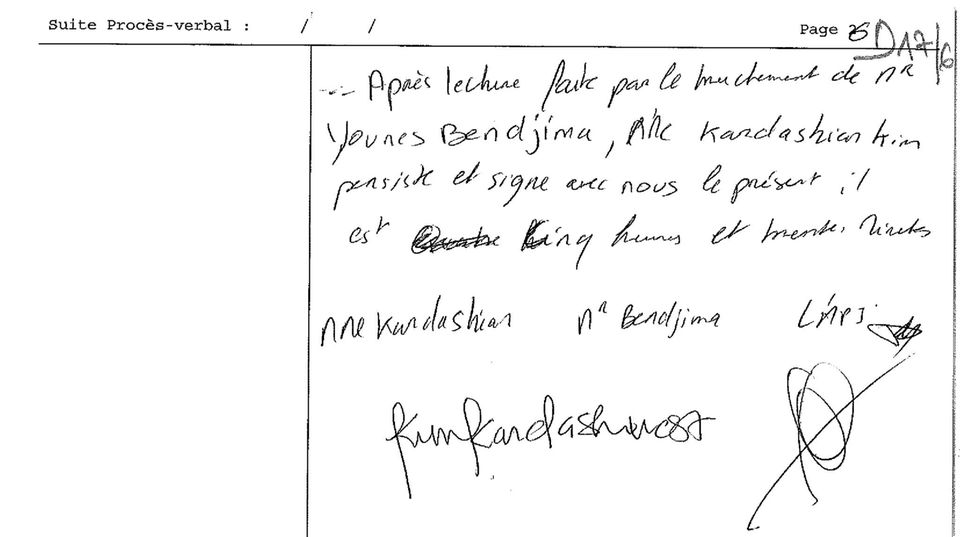 Suite Procès-verbal : / /
Page 6 D17/6
-- Après lecture faite par le truchement de Mr
Younes Bendjima, Mlle Kardashian Kim
persiste et signe avec nous le présent, il
est cinq heures et trente minutes
Mlle Kardashian Mr Bendjima L'APJ.
Kim Kardashian